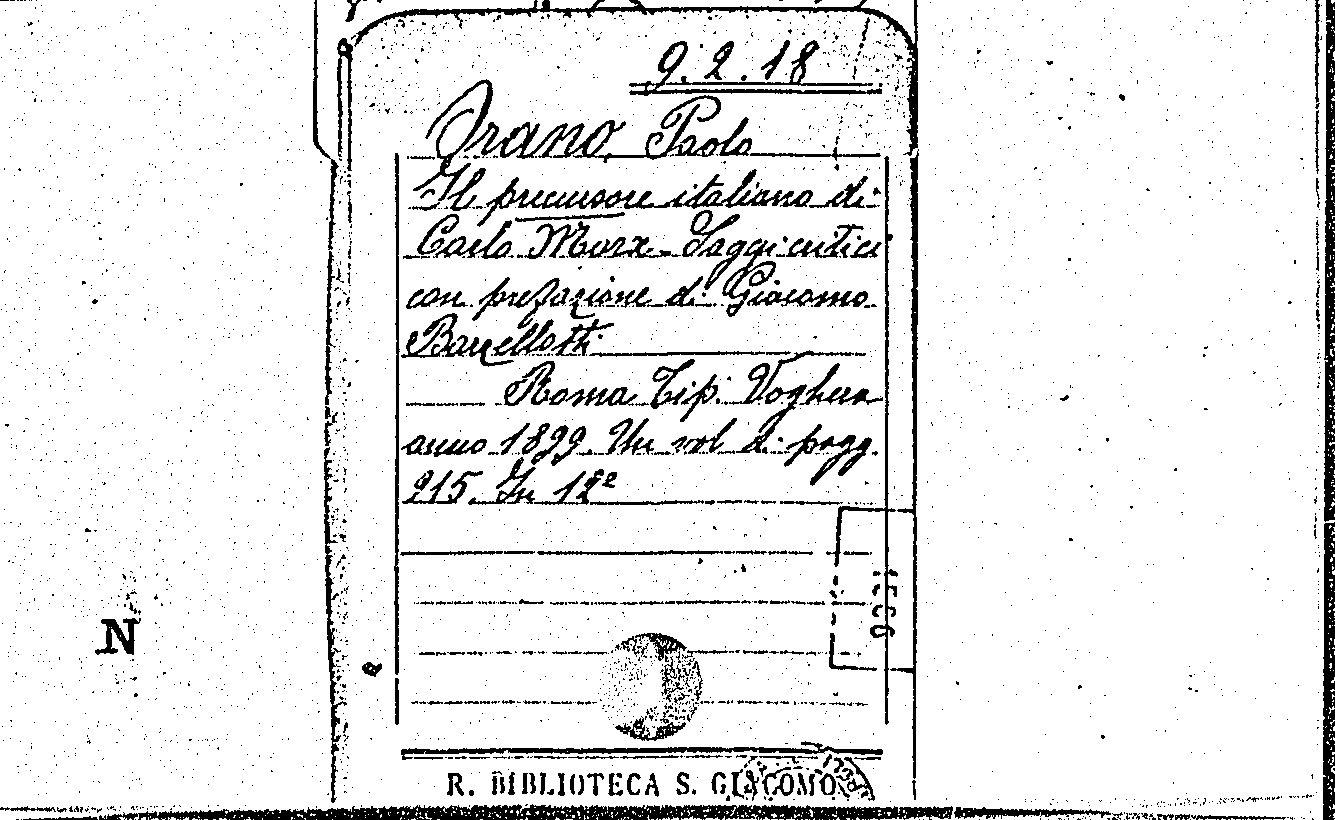 9.2.18
Orano, Paolo
Il precursore italiano di
Carlo Marx - Saggi critici
con prefazione di Giacomo
Barzellotti
Roma Tip. Voghera
anno 1899. Un vol di pagg.
215. In 12º
N
R. BIBLIOTECA S. GIACOMO